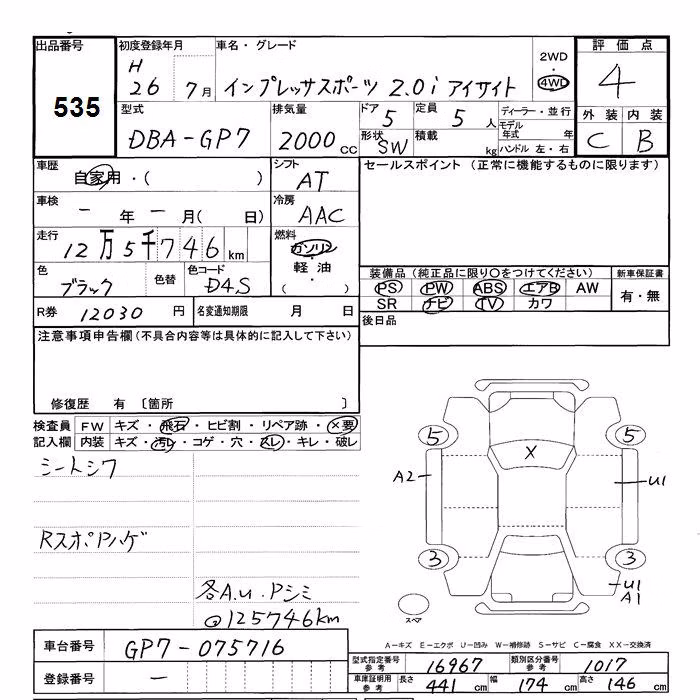 出品番号 初度登録年月 車名・グレード 2WD ・ 4WD 評価点
535 H 26 7月 インプレッサスポーツ 2.0i アイサイト 4
型式 排気量 ドア 定員 ディーラー・並行 外装 内装
DBA-GP7 2000 CC 5 5人 モデル年式 年 C B
形状 SW 積載 kg ハンドル 左・右
車歴 シフト セールスポイント (正常に機能するものに限ります)
自家用・( ) AT
車検 冷房
ー年ー月( 日) AAC
走行 燃料
12万5千746km ガソリン
色 色替 色コード ・軽油・ 装備品 (純正品に限り〇をつけてください) 新車保証書
ブラック D4S ( ) PS PW ABS エアB AW 有・無
R券 12030 円 名変通知期限 月 日 SR ナビ TV カワ
注意事項申告欄(不具合内容等は具体的に記入して下さい) 後日品
修復歴 有 〔箇所 〕
検査員 FW キズ・飛石・ヒビ割・リペア跡・×要
記入欄 内装 キズ・汚レ・コゲ・穴・スレ・キレ・破レ
シートシワ
RスポPハゲ
各A.u.Pシミ
@125746km
5 5
X
A2 U1
3 3
U1
A1
スペア
A-キズ E-エクボ U-凹み W-補修跡 S-サビ C-腐食 XX-交換済
車台番号 GP7-075716
登録番号 ー
型式指定番号 参考 16967 類別区分番号 参考 1017
車庫証明用 参考 長さ 441 cm 幅 174 cm 高さ 146 cm